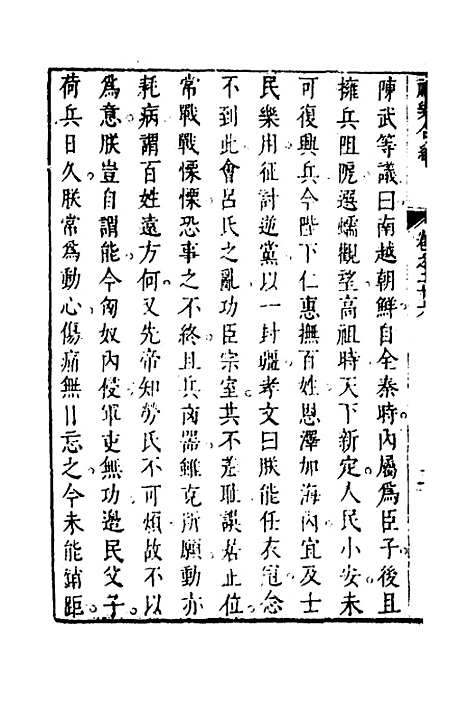 陳武等議曰南越朝鮮自全秦時內屬爲臣子後且
擁兵阻阨選蠕觀望高祖時天下新定人民小安未
可復興兵今陛下仁惠撫百姓恩澤加海內宜及士
民樂用征討逆黨以一封疆孝文曰朕能任衣冠念
不到此會呂氏之亂功臣宗室共不羞恥誤居正位
常戰戰慄慄恐事之不終且兵凶器雖克所願動亦
耗病謂百姓遠方何又先帝知勞民不可煩故不以
爲意朕豈自謂能今匈奴內侵軍吏無功邊民父子
荷兵日久朕常爲動心傷痛無日忘之今未能銷距